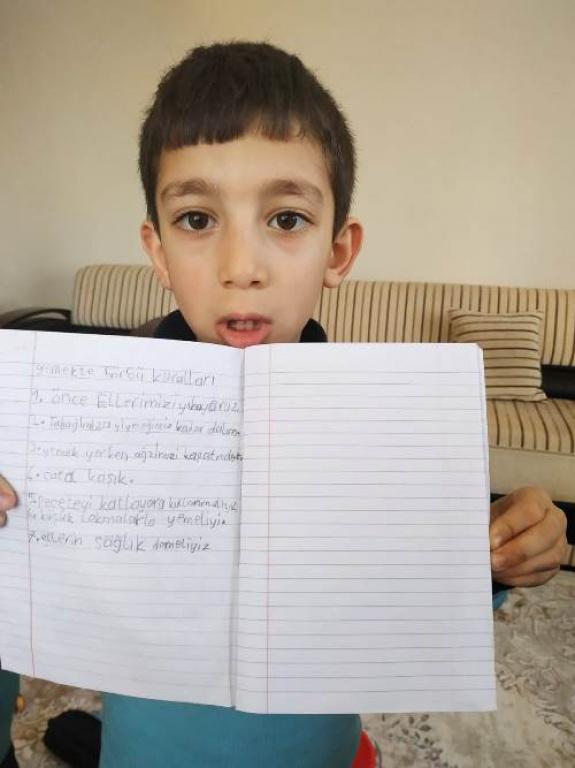 yemekte Görgü kuralları
1. önce Ellerimizi yıkayoruz.
2. Tabağımıza yiyeceğimiz kadar
3. yemek yerken ağzımızı
4. çatal kaşık.
5. peçeteyi katlayara
6. küçük lokmalarla yemeliyiz
7. ellerin sağlık demeliyiz